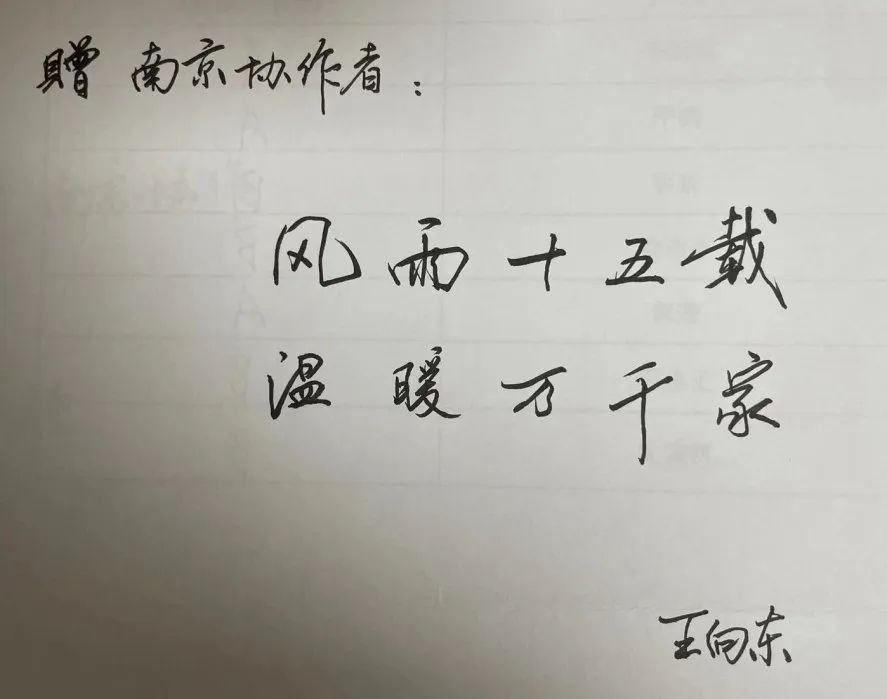 贈 南京协作者：
风雨十五载
温暖万千家
王向东